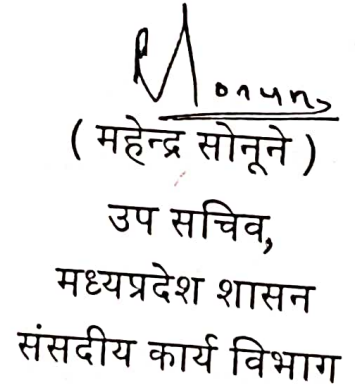 ( महेन्द्र सोनूने )
उप सचिव,
मध्यप्रदेश शासन
संसदीय कार्य विभाग